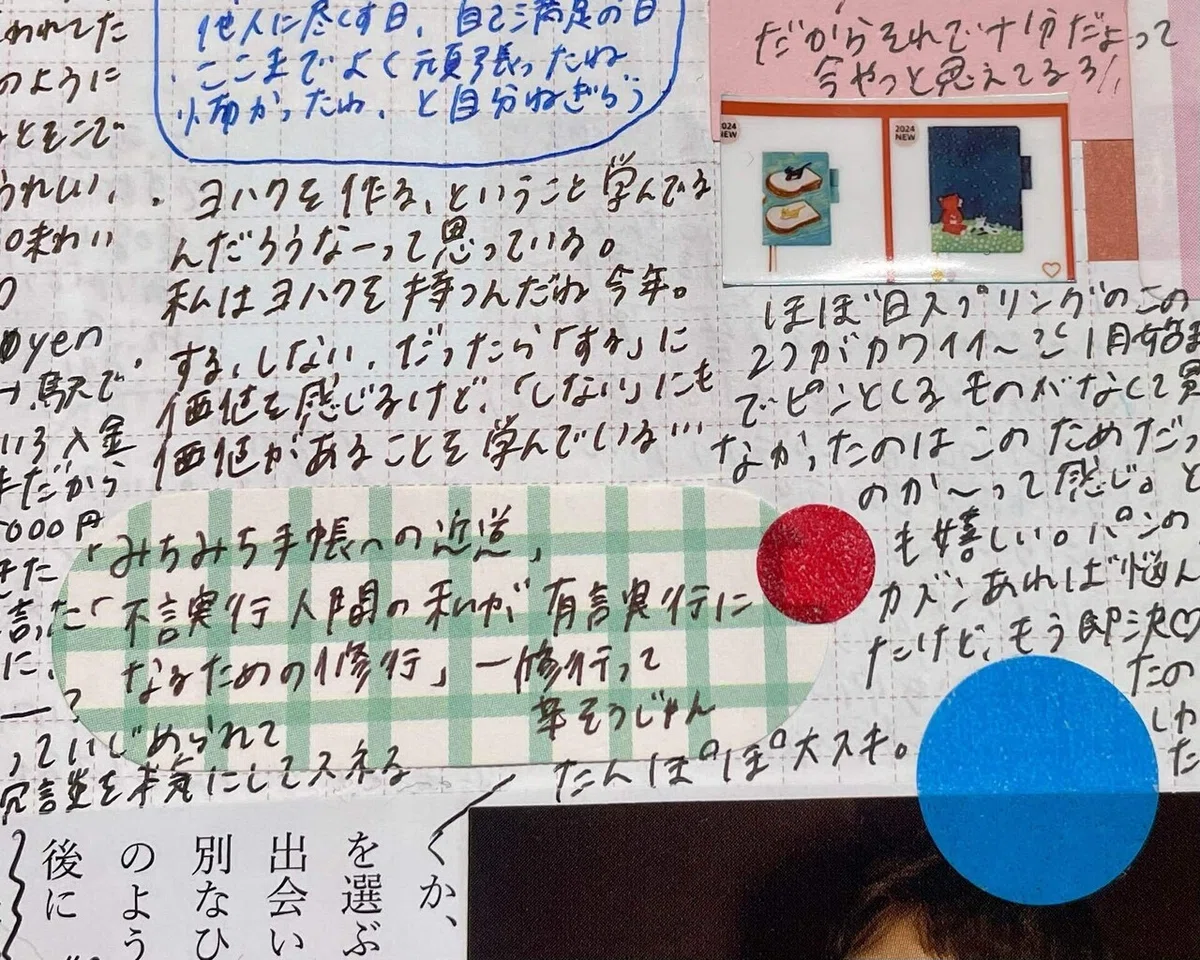 われてた
のように
うれしい、
味わい
yen
駅で
入金
まだから
000円
きた
言った
に、
他人に尽くす日、自己満足の日
ここまでよく頑張ったね
怖かったね、と自分ねぎらう
・ヨハクを作る、ということ学んでる
んだろうなーって思っている。
私はヨハクを持つんだね今年。
・する、しない、だったら「する」に
価値を感じるけど、「しない」にも
価値があることを学んでいる…
「みちみち手帳への近道」
「不言実行人間の私が有言実行に
なるための修行」一修行って
辛そうじゃん
っていじめられて
冗談を本気にしてスネる
たんぽぽ大スキ。
だからそれで十分だよって
今やっと思えてるろ//
2024
NEW
2024
NEW
ほぼ日スプリングのこの
2つがカワイイ〜! 1月始ま
でピンとくるものがなくて買
なかったのはこのためだっ
のか〜って感じ。と
も嬉しい。パンの
カズンあれば悩ん
だけど、もう即決♡
たの
しか
た
くか、
を選ぶ
出会い
別なひ
のよう
後に